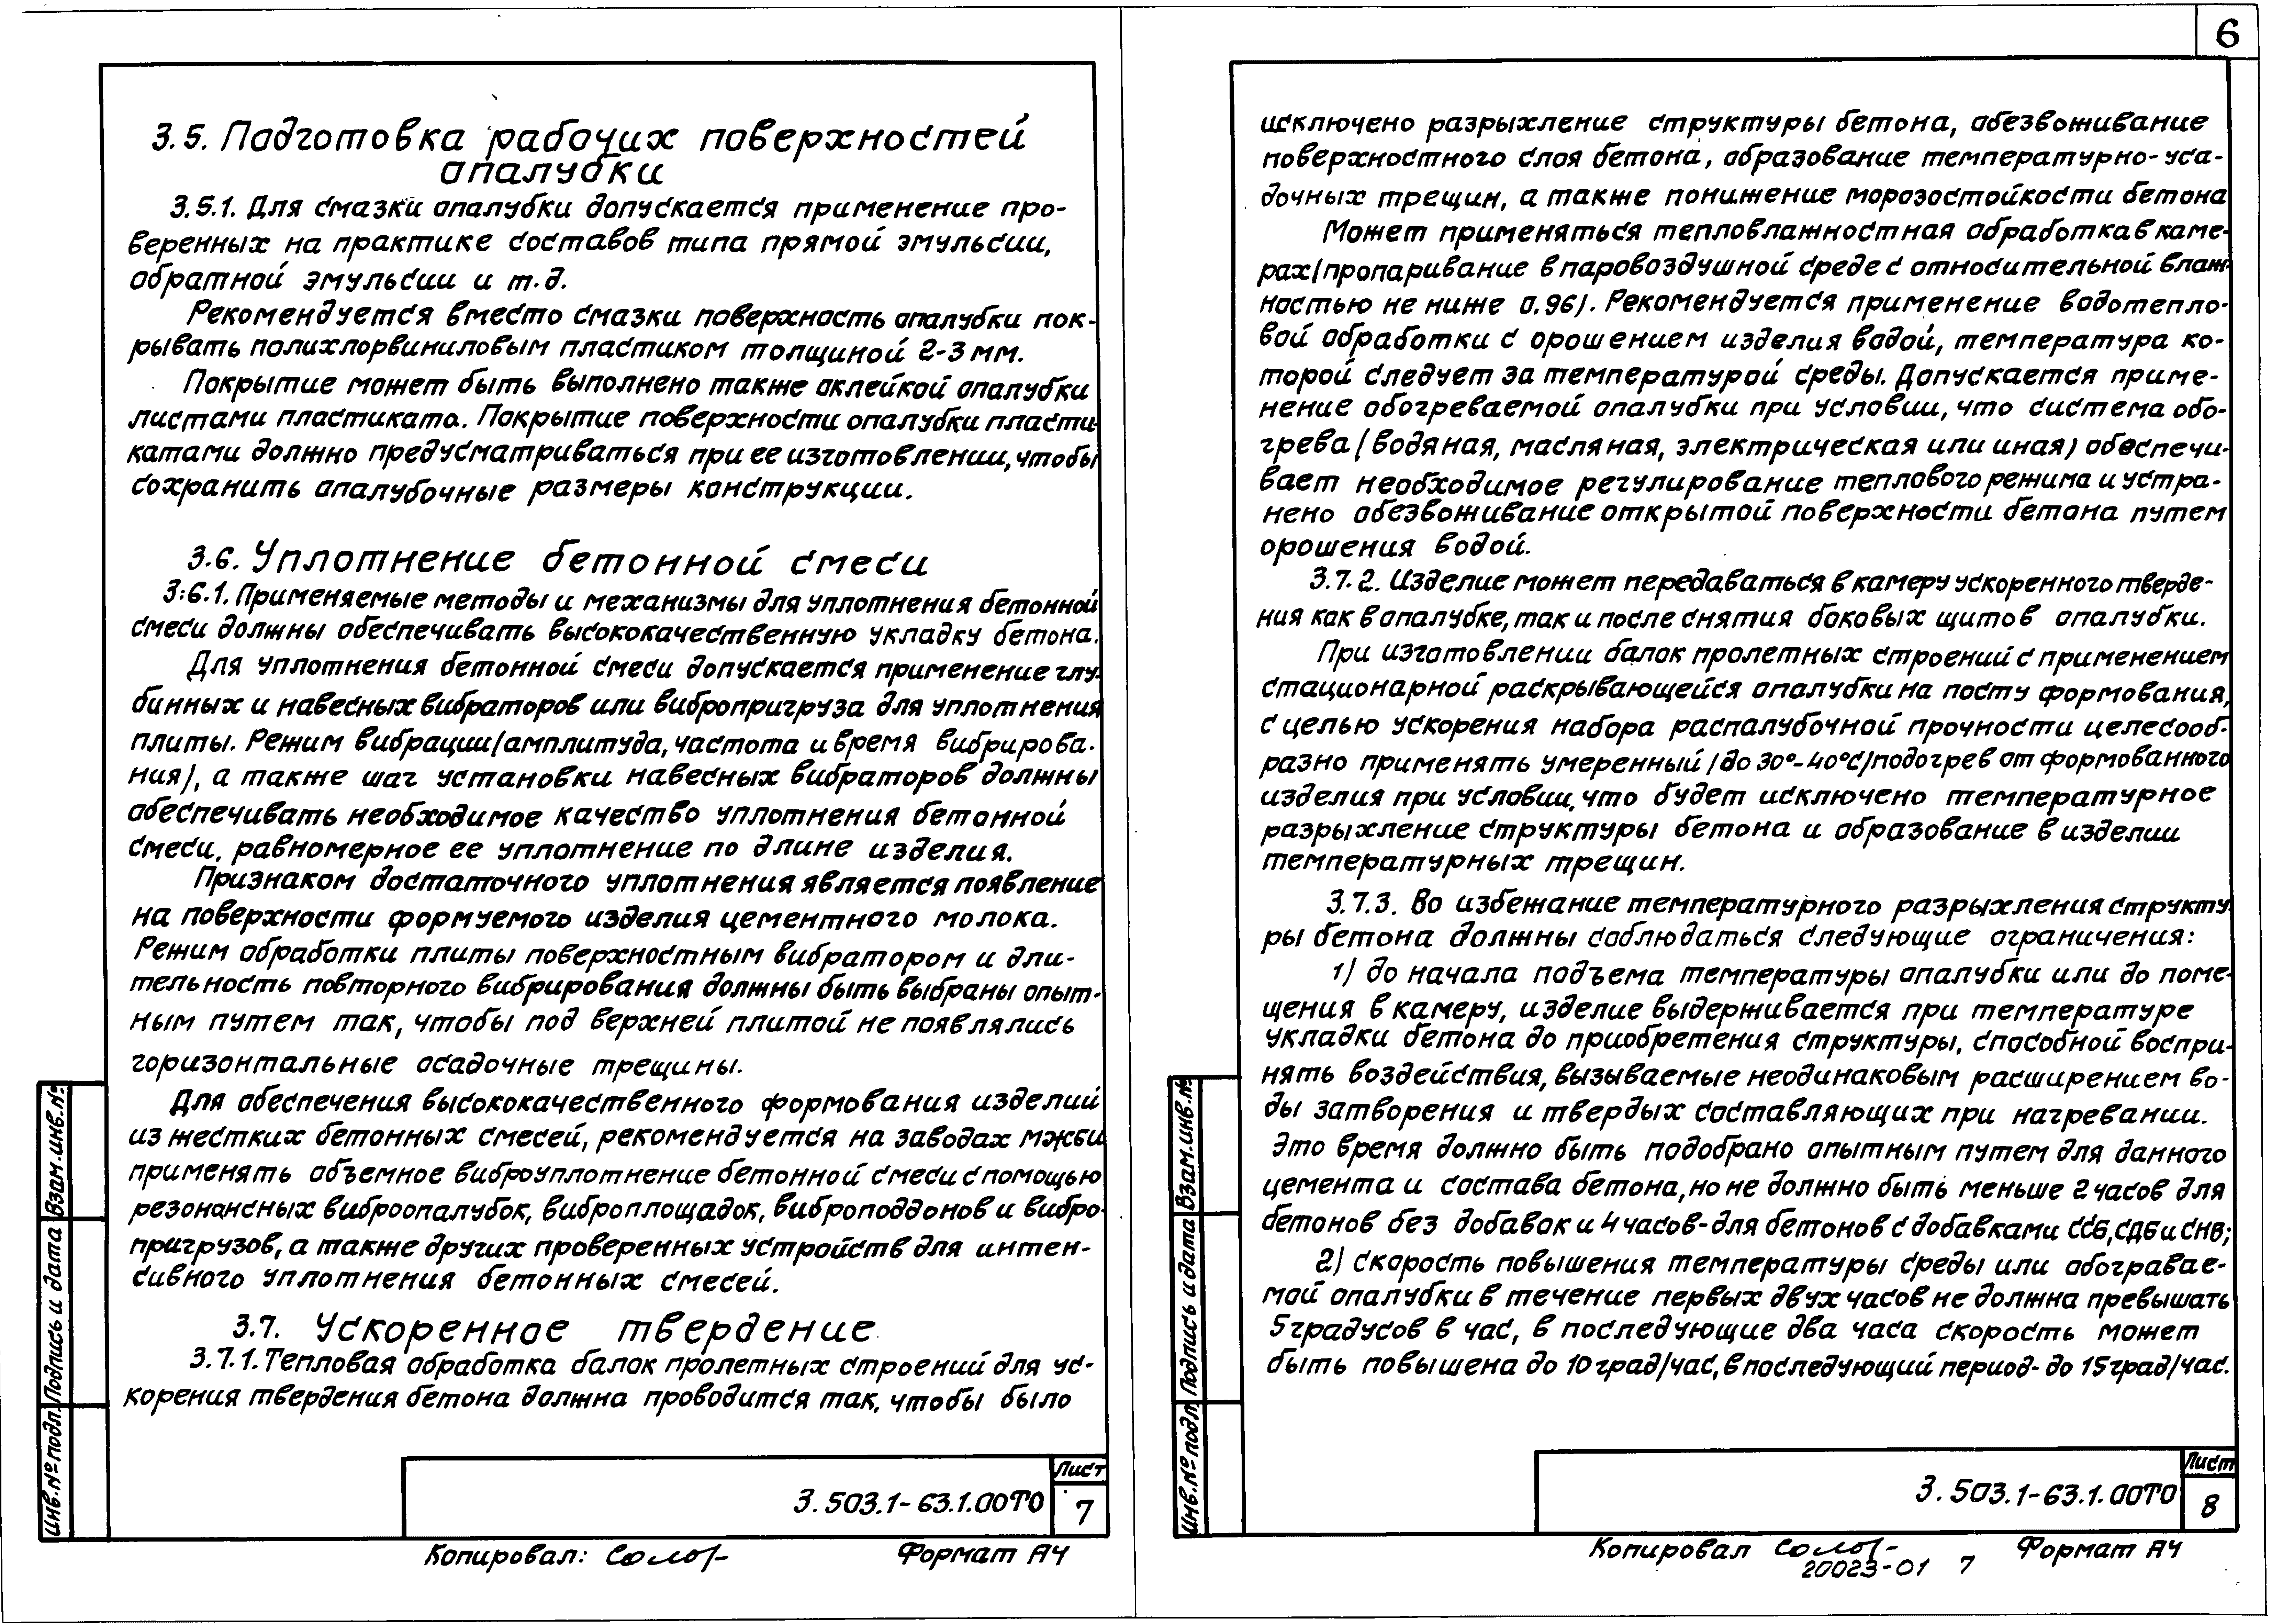 6
3.5. Подготовка рабочих поверхностей
опалубки
3.5.1. Для смазки опалубки допускается применение про-
веренных на практике составов типа прямой эмульсии,
обратной эмульсии и т.д.
Рекомендуется вместо смазки поверхность опалубки пок-
рывать полихлорвиниловым пластиком толщиной 2-3 мм.
Покрытие может быть выполнено также оклейкой опалубки
листами пластиката. Покрытие поверхности опалубки пласти-
катами должно предусматриваться при ее изготовлении, чтобы
сохранить опалубочные размеры конструкции.
3.6. Уплотнение бетонной смеси
3.6.1. Применяемые методы и механизмы для уплотнения бетонной
смеси должны обеспечивать высококачественную укладку бетона.
Для уплотнения бетонной смеси допускается применение глу-
бинных и навесных вибраторов или вибропригруза для уплотнения
плиты. Режим вибрации/амплитуда, частота и время вибрирова-
ния), а также шаг установки навесных вибраторов должны
обеспечивать необходимое качество уплотнения бетонной
смеси, равномерное ее уплотнение по длине изделия.
Признаком достаточного уплотнения является появление
на поверхности формуемого изделия цементного молока.
Режим обработки плиты поверхностным вибратором и дли-
тельность повторного вибрирования должны быть выбраны опыт-
ным путем так, чтобы под верхней плитой не появлялись
горизонтальные осадочные трещины.
Для обеспечения высококачественного формования изделий
из жестких бетонных смесей, рекомендуется на заводах мжби
применять объемное виброуплотнение бетонной смеси с помощью
резонансных виброопалубок, виброплощадок, виброподдонов и вибро-
пригрузов, а также других проверенных устройств для интен-
сивного уплотнения бетонных смесей.
3.7. Ускоренное твердение
3.7.1. Тепловая обработка балок пролетных строений для ус-
корения твердения бетона должна проводится так, чтобы было
Взам.инв.№
Подпись и дата
Инв.№подл.
3.503.1-63.1.00ТО
Лист
7
Копировал:
Формат А4
исключено разрыхление структуры бетона, обезвоживание
поверхностного слоя бетона, образование температурно-уса-
дочных трещин, а также понижение морозостойкости бетона
Может применяться тепловлажностная обработка в каме-
рах/пропаривание в паровоздушной среде с относительной влаж-
ностью не ниже 0.96). Рекомендуется применение водотепло-
вой обработки с орошением изделия водой, температура ко-
торой следует за температурой среды. Допускается приме-
нение обогреваемой опалубки при условии, что система обо-
грева (водяная, масляная, электрическая или иная) обеспечи-
вает необходимое регулирование теплового режима и устра-
нено обезвоживание открытой поверхности бетона путем
орошения водой.
3.7.2. Изделие может передаваться в камеру ускоренного тверде-
ния как в опалубке, так и после снятия боковых щитов опалубки.
При изготовлении балок пролетных строений с применением
стационарной раскрывающейся опалубки на посту формования,
с целью ускорения набора распалубочной прочности целесооб-
разно применять умеренный /до 30°-40°С/подогрев от формованного
изделия при условии, что будет исключено температурное
разрыхление структуры бетона и образование в изделии
температурных трещин.
3.7.3. Во избежание температурного разрыхления структу-
ры бетона должны соблюдаться следующие ограничения:
1) до начала подъема температуры опалубки или до поме-
щения в камеру, изделие выдерживается при температуре
укладки бетона до приобретения структуры, способной воспри-
нять воздействия, вызываемые неодинаковым расширением во-
ды затворения и твердых составляющих при нагревании.
Это время должно быть подобрано опытным путем для данного
цемента и состава бетона, но не должно быть меньше 2 часов для
бетонов без добавок и 4 часов-для бетонов с добавками ССБ, СДБ и СНВ;
2) скорость повышения температуры среды или обогравае-
мой опалубки в течение первых двух часов не должна превышать
5 градусов в час, в последующие два часа скорость может
быть повышена до 10 град/час, в последующий период- до 15 град/час.
Взам.инв.№
Подпись и дата
Инв.№подл
3.503.1-63.1.00ТО
Лист
8
Копировал
Формат А4
20023-01 7